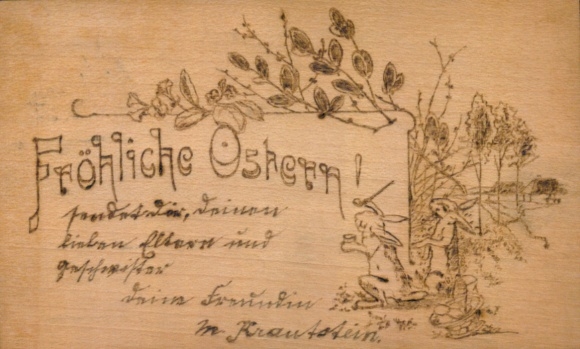 Fröhliche Ostern!
sendet dir, deinen
lieben Eltern und
Geschwister
deine Freundin
M. Krautstein.